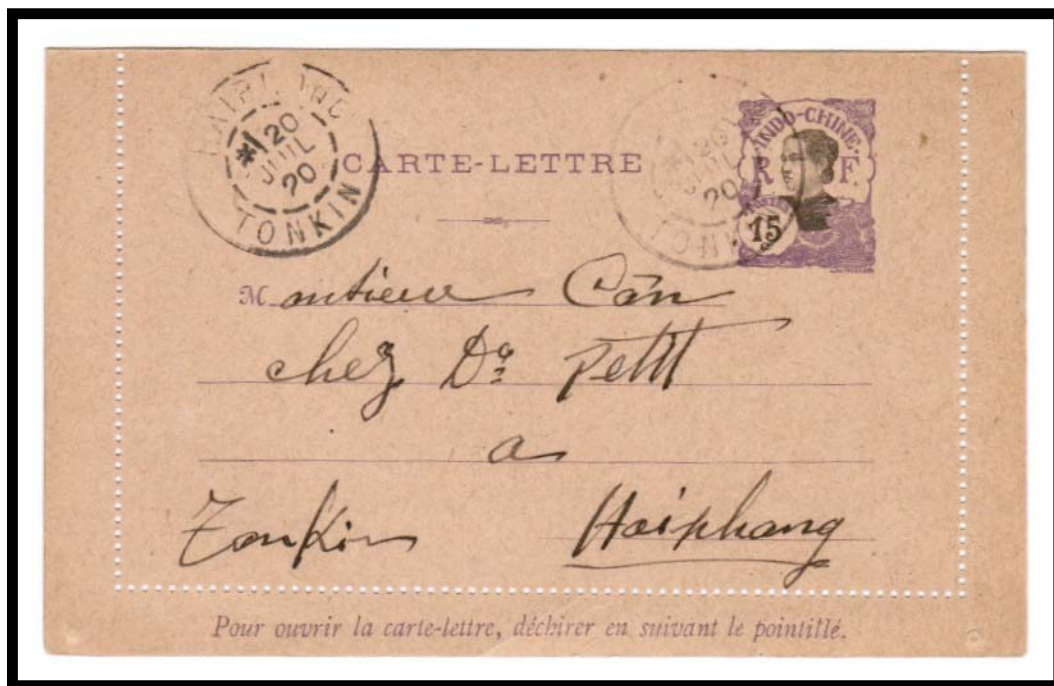 HAIPHONG
*1 20
JUIL
20
TONKIN
CARTE-LETTRE
20
20
INDO-CHINE
R F
POSTES
15
Monsieur Cân
chez Da Petit
a
Tonkin Haiphang
Pour ouvrir la carte-lettre, déchirer en suivant le pointillé.